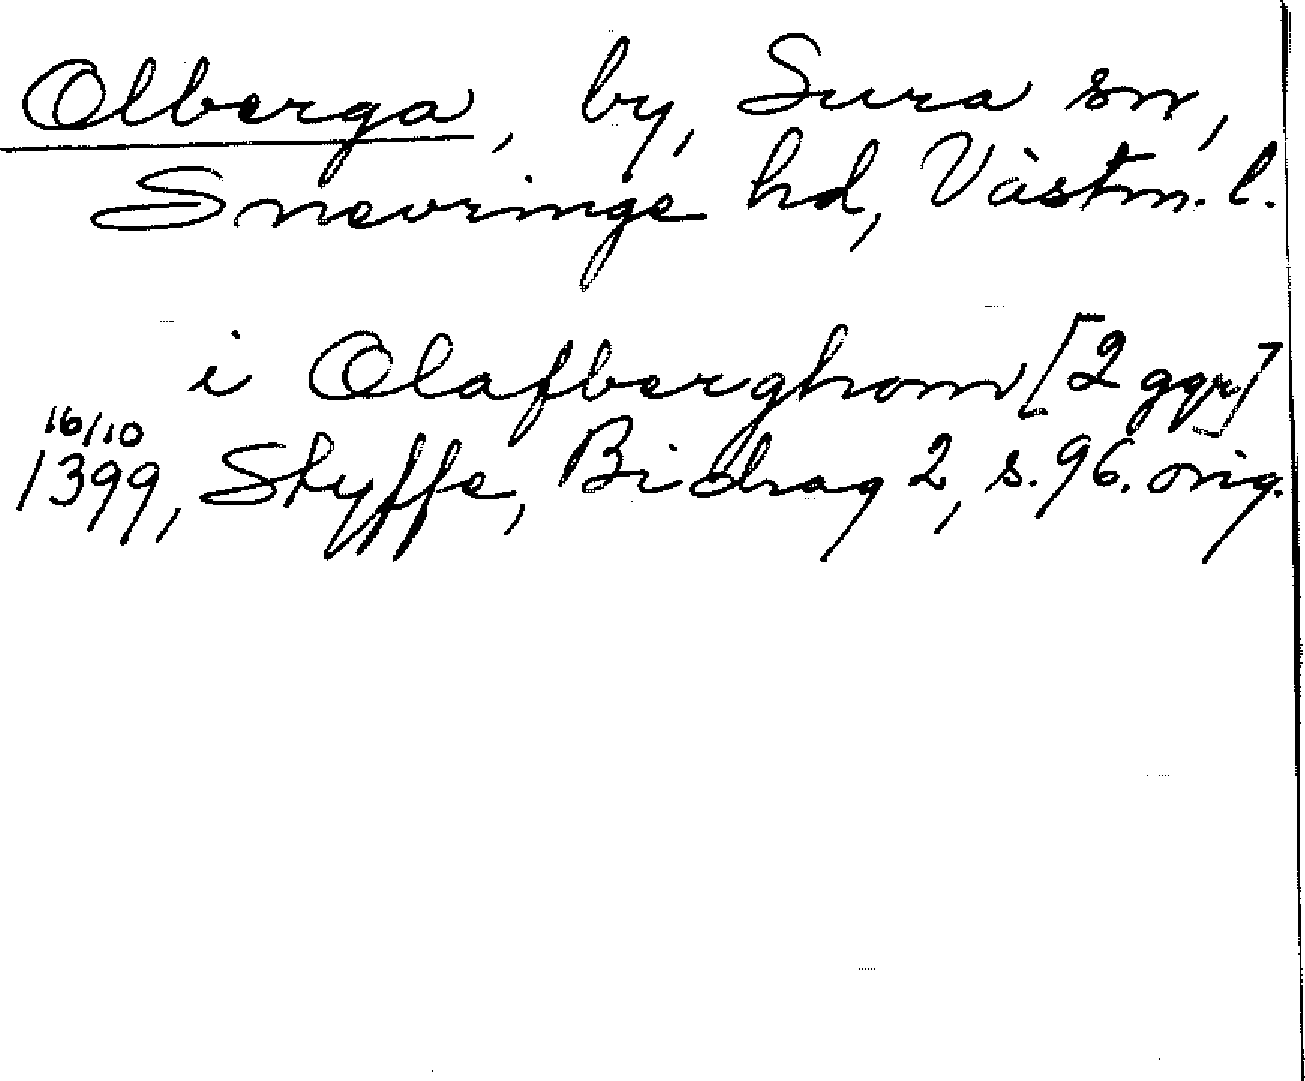 Olberga, by, Sura sn,
Snevringe hd, Västm. l.
i Olafberghom [2 ggr]
16/10
1399, Styffe, Bidrag 2, s. 96. orig.